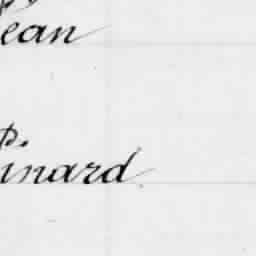 ean
p.
inard.